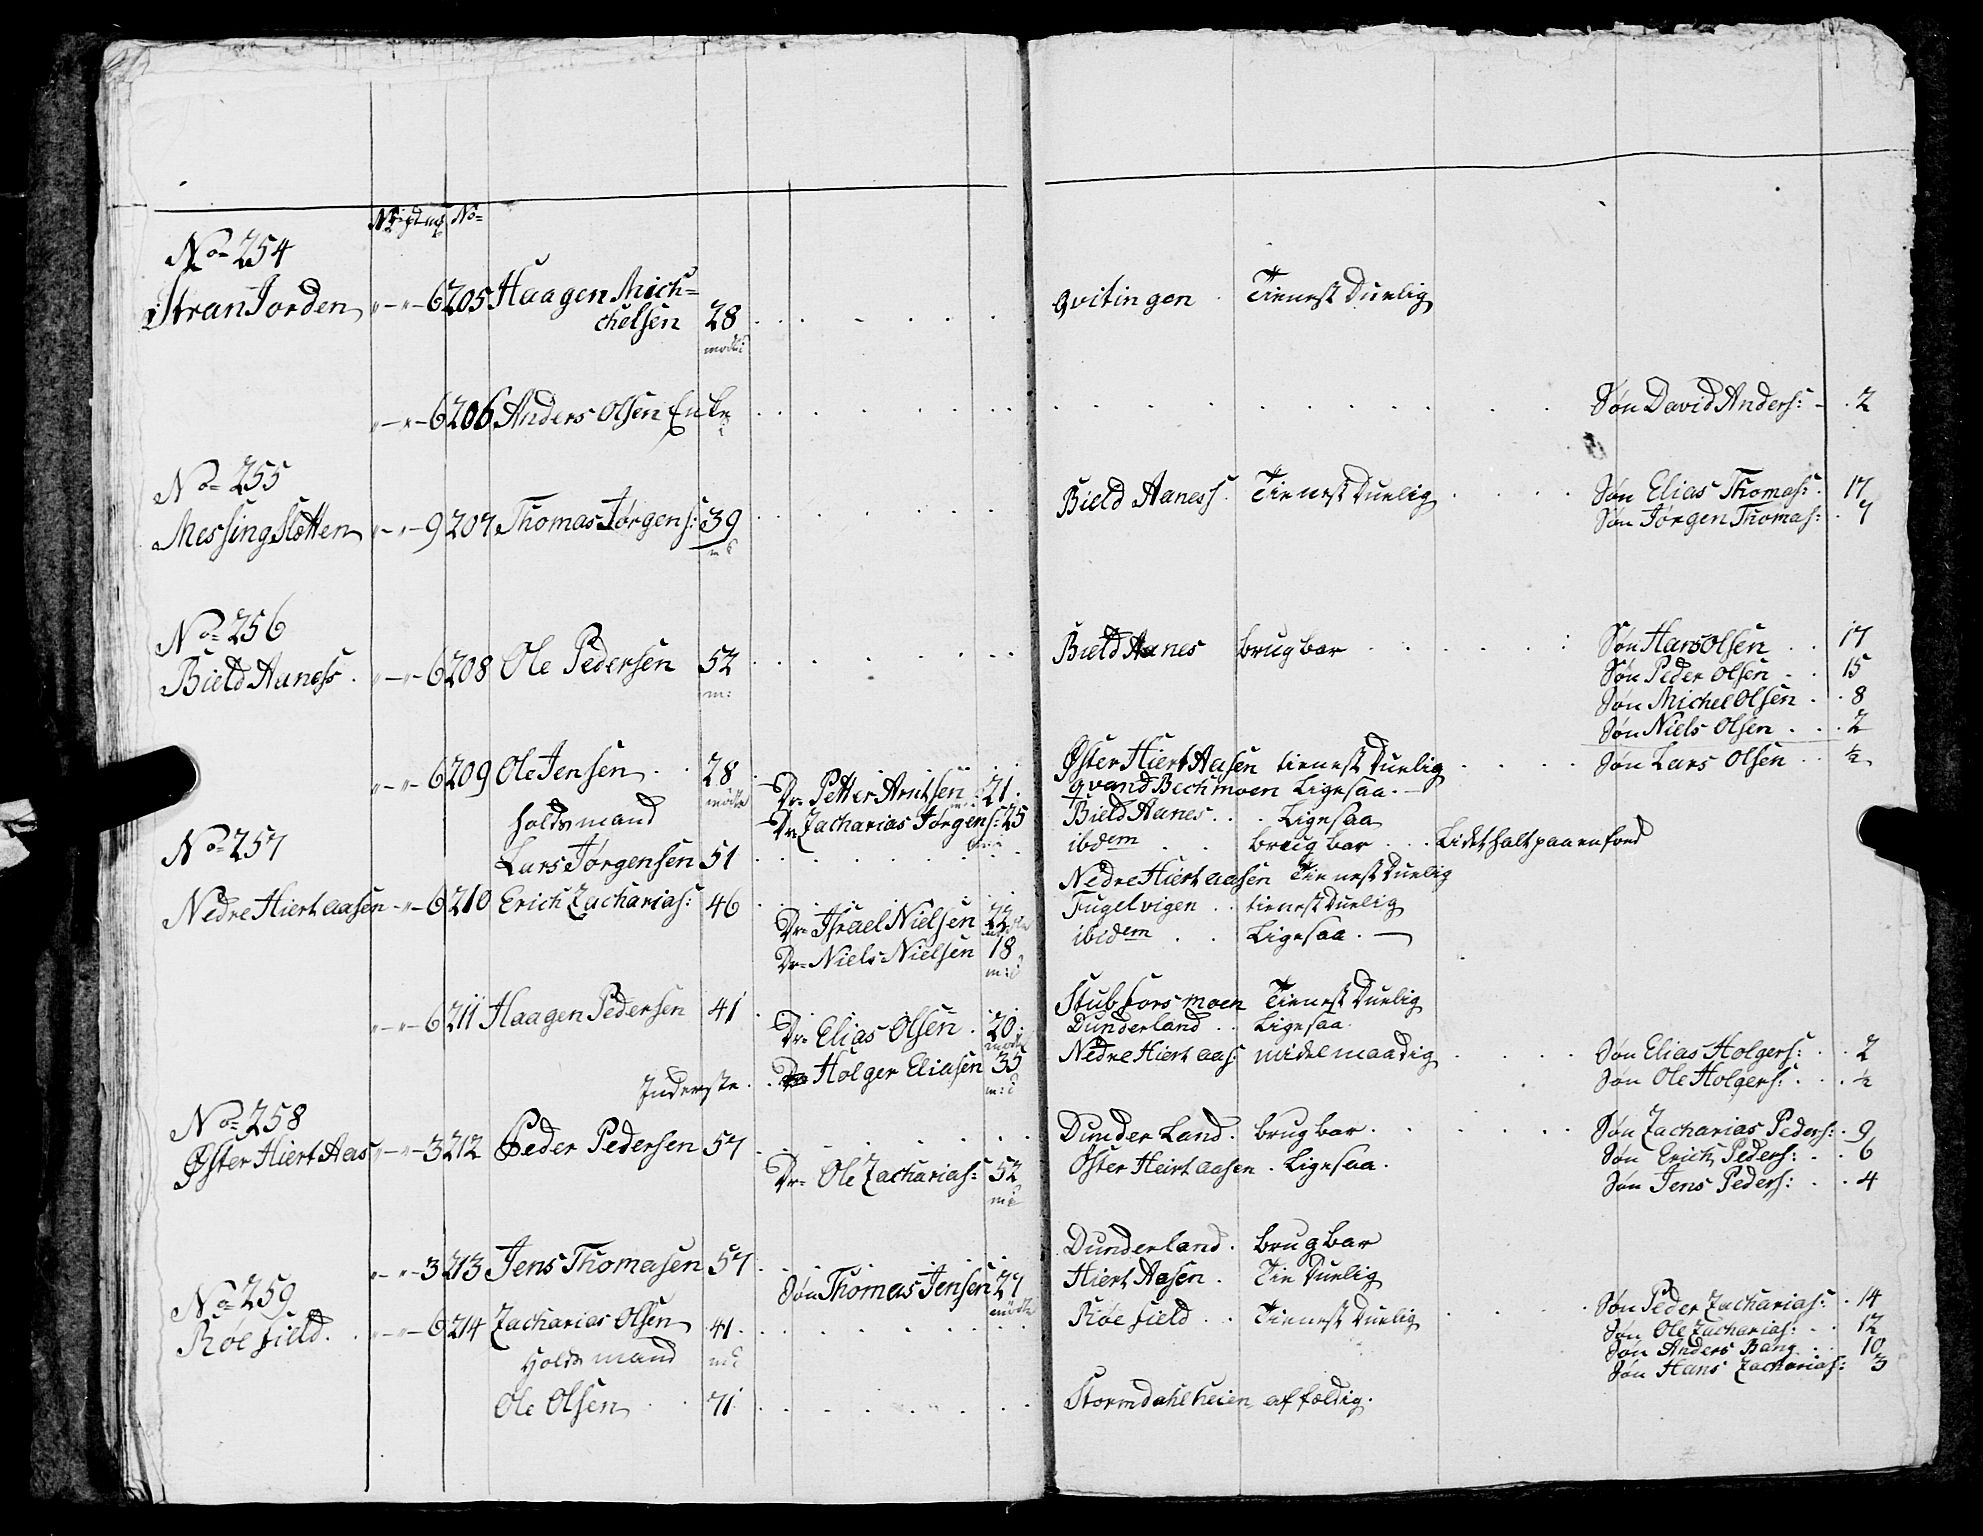 No 254
StranJorden " — " — 6 205 Haagen Mich=
chelsen 28 Qvitingen Tienest Duelig
mødte
" — " — 6 206 Anders Olsen Enke Søn David Anders: 2
No 255
Messing Sletten " — " — 9 207 Thomas Jørgens: 39 Bield Aaness Tienest Duelig Søn Elias Thomas: 17
Søn Jørgen Thomas: 7
No 256
Bield Aaness " — " — 6 208 Ole Pedersen 52 Bield Aanes brugbar Søn Hans Olsen 17
m: Søn Peder Olsen 15
Søn Michel Olsen 8
Søn Niels Olsen 2
" — " — 6 209 Ole Jensen 28 Øster Hiert Aasen tienest Duelig Søn Lars Olsen ½
mødte Dr= Petter Arntsen 21 Qvand Bechmoen Ligesaa. —
holdsmand Dr Zacharias Jørgens: 25 Bield Aanes Ligesaa
No 257
Lars Jørgensen 51 ibdem brugbar Lidet halt paa en foed
Nedre Hiert aasen " — 6 210 Erich Zacharias: 46 Nedre Hiert aasen Tienest Duelig
Dr= Israel Nielsen 22 Fugelvigen tienest Duelig
Dr= Niels Nielsen 18 ibidem Ligesaa. —
m:d
" — " — 6 211 Haagen Pedersen 41 Stubforsmoen Tienest Duelig
Dr= Elias Olsen 20 Dunderland Ligesaa
mødte
Inderste Holger Eliasen 35 Nedre Hiert aas: midelmaadig Søn Elias Holgers: 2
m:d Søn Ole Holgers: ½
No 258
Øster Hiert Aas " — " — 3 212 Peder Pedersen 57 Dunder Land brugbar Søn Zacharias Peders: 9
Dr= Ole Zacharias: 52 Øster Heirt aasen Ligesaa. Søn Erich Peders: 6
Søn Jens Peders: 4
" — " — 3 213 Jens Thomasen 57 Dunderland brugbar
No 259
Søn Thomas Jensen 27 Hiert Aasen Tie Duelig
mødte
Røefield " — " — 6 214 Zacharias Olsen 41 Røefield Tienest Duelig Søn Peder Zacharias: 14
Holdsmand Søn Ole Zacharias: 12
Søn Anders Bang 10
Søn Hans Zacharias: 3
Ole Olsen 71 Stormdahlheien affældig.